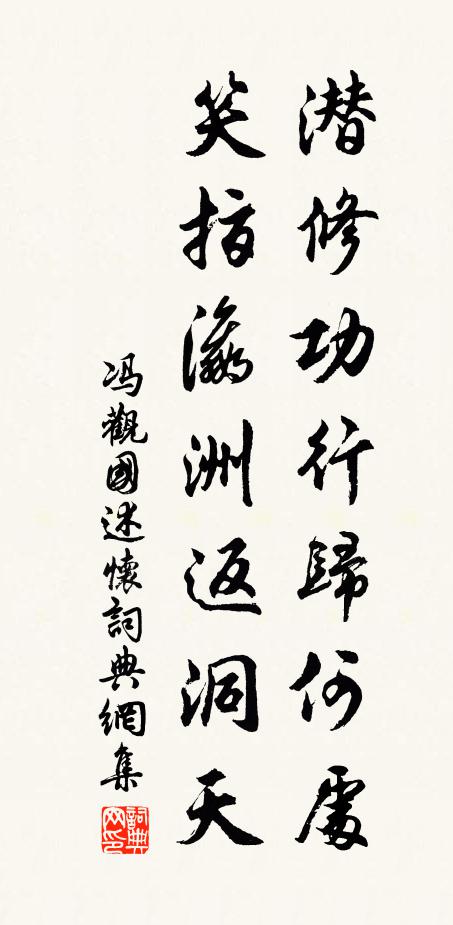 潜修功行歸何處
笑指瀛洲返洞天
冯觀國述懷詞典網集
詞典网印